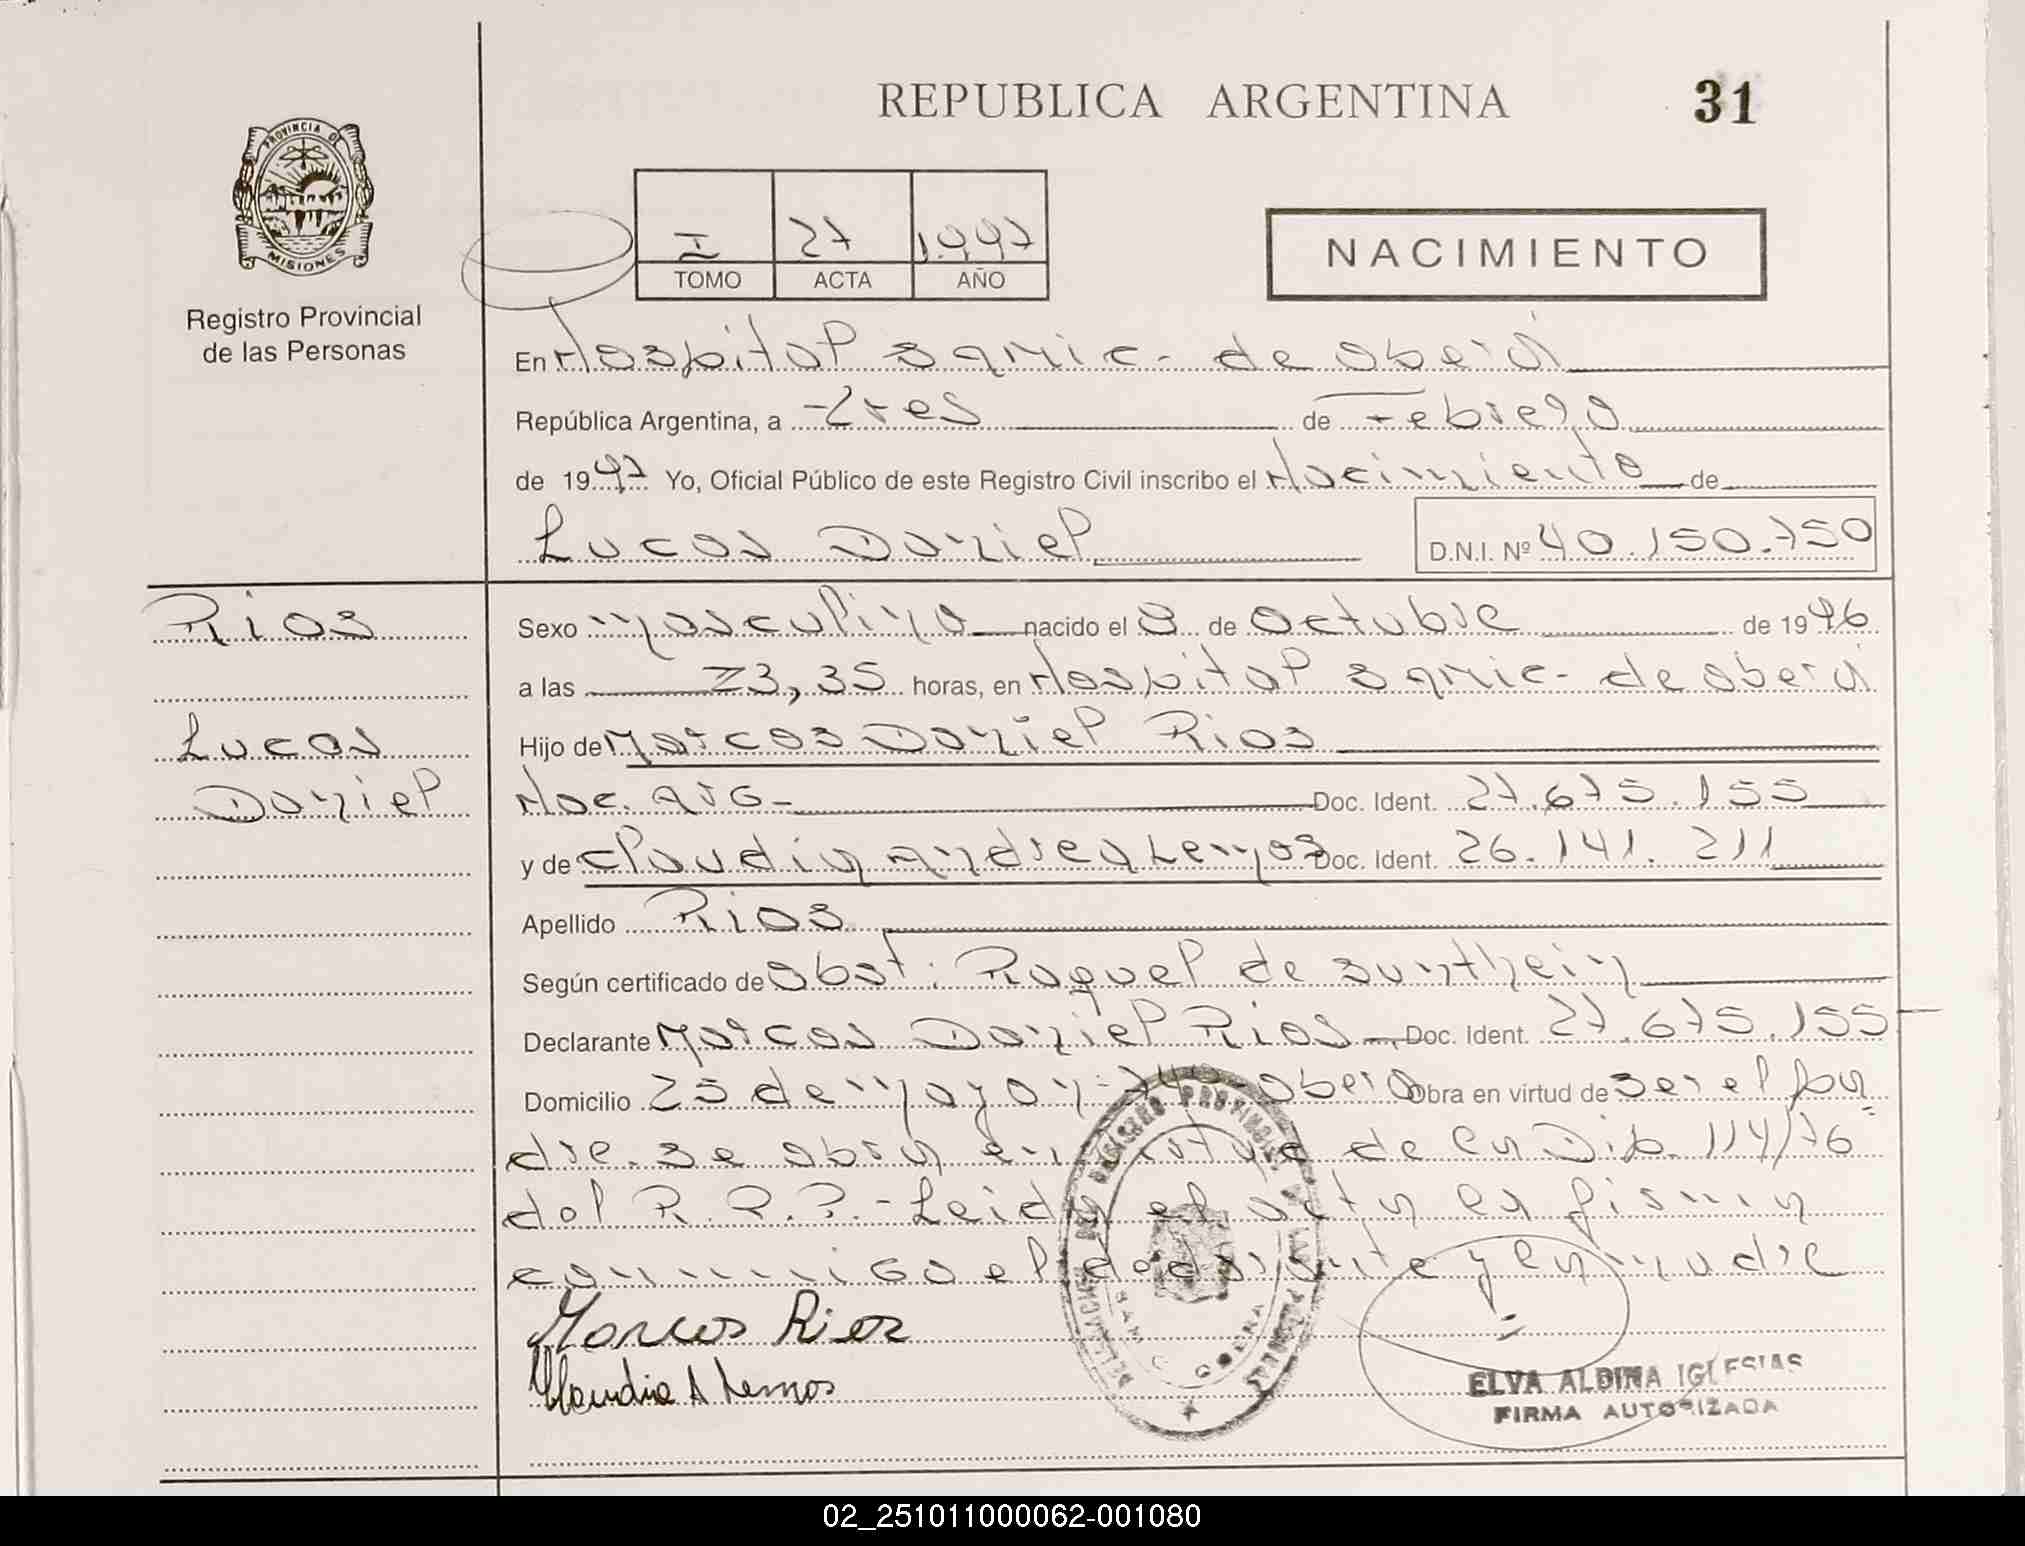 REPUBLICA ARGENTINA
31
PROVINCIA DE
MISIONES
Registro Provincial
de las Personas
I 27 1.997
TOMO ACTA AÑO
NACIMIENTO
En Hospital Samic - de Oberá
República Argentina, a Tres de Febrero
de 1997 Yo, Oficial Público de este Registro Civil inscribo el Nacimiento de
Lucas Daniel D.N.I. Nº 40.150.750
Rios
Sexo masculino nacido el 8 de Octubre de 1996
a las 23,35 horas, en Hospital Samic - de Oberá
Lucas
Hijo de Marcos Daniel Rios
Daniel
Nac. Arg - Doc. Ident. 27.675.155
y de Claudia Andrea Lemos Doc. Ident. 26.141.211
Apellido Rios
Según certificado de Obst: Raquel de Sunthein
Declarante Marcos Daniel Rios - Doc. Ident. 27.675.155
Domicilio 25 de mayo n: 740 - Oberá Obra en virtud de ser el pa=
dre. Se obra en virtud de la Dip. 114/76
del R.P.P. - Leida el acta la firman
conmigo el declarante y la madre
Marcos Rios
Claudia A Lemos
ELVA ALDINA IGLESIAS
FIRMA AUTORIZADA
02_251011000062-001080